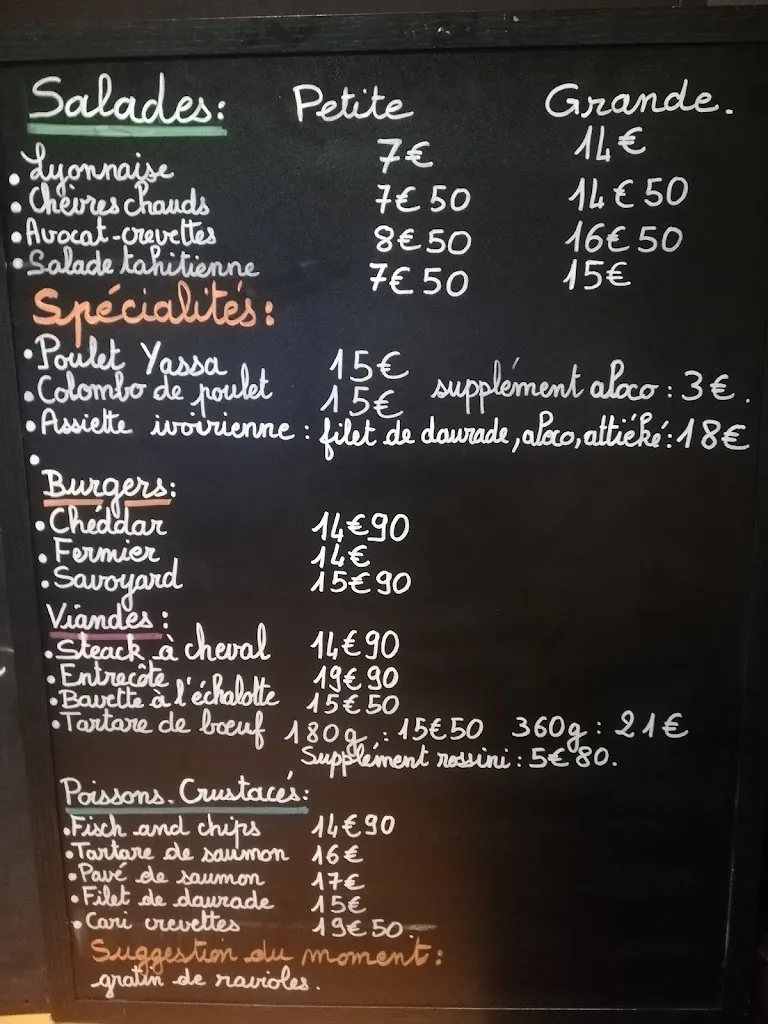 Salades: Petite Grande.
• Lyonnaise 7€ 14€
• Chèvres chauds 7€50 14€50
• Avocat-crevettes 8€50 16€50
• Salade tahitienne 7€50 15€
Spécialités:
• Poulet Yassa 15€
• Colombo de poulet 15€ supplément aloco : 3€.
• Assiette ivoirienne : filet de daurade, aloco, attiéké : 18€
•
Burgers:
• Cheddar 14€90
• Fermier 14€
• Savoyard 15€90
Viandes :
• Steack à cheval 14€90
• Entrecôte 19€90
• Bavette à l'échalotte 15€50
• Tartare de bœuf 180g : 15€50 360g : 21€
Supplément rossini : 5€80.
Poissons. Crustacés:
• Fisch and chips 14€90
• Tartare de saumon 16€
• Pavé de saumon 17€
• Filet de daurade 15€
• Cari crevettes 19€50.
Suggestion du moment :
gratin de ravioles.